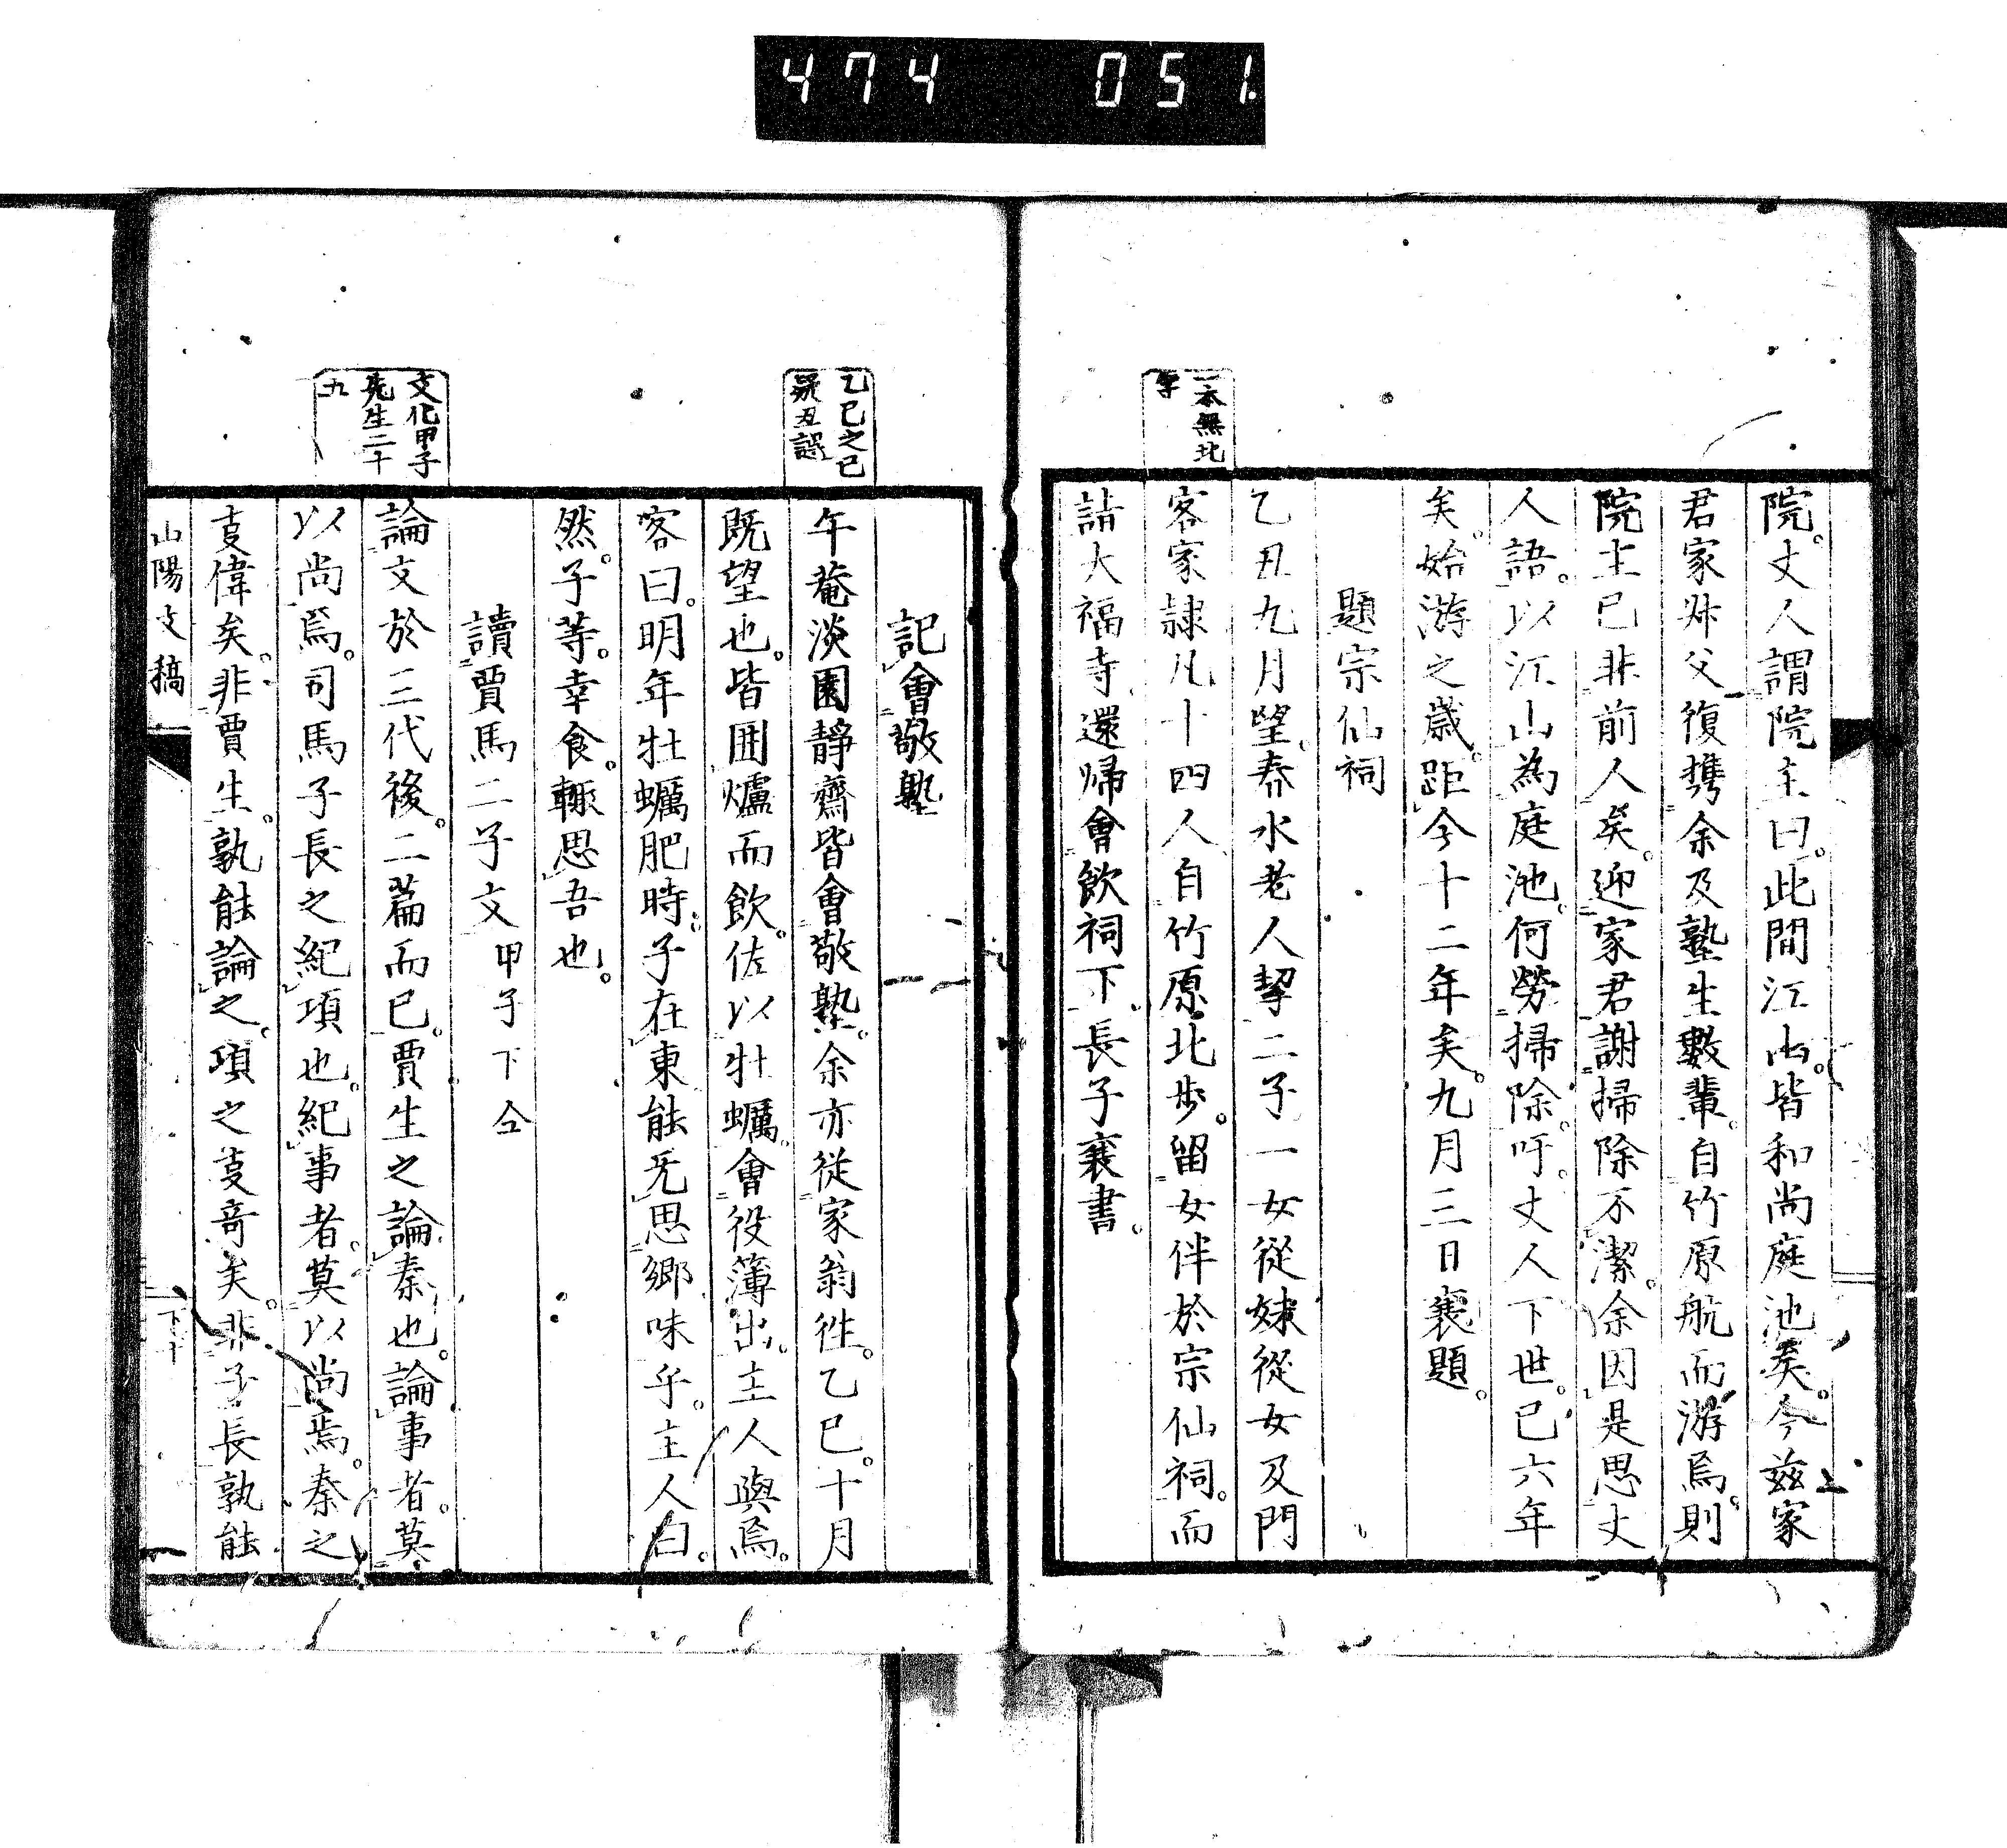 474 051
一本無北
字
院丈人謂院主曰此間江山皆和尚庭池矣今兹家
君家叔父復携余及塾生數輩自竹原航而游焉則
院主已非前人矣迎家君謝掃除不潔余因是思丈
人語以江山為庭池何勞掃除吁丈人下世已六年
矣始游之歳距今十二年矣九月三日襄題
題宗仙祠
乙丑九月望春水老人挈二子一女從妹從女及門
客家隷凡十四人自竹原北步留女伴於宗仙祠而
詣大福寺還帰會飲祠下長子襄書
乙巳之巳
疑丑誤
文化甲子
先生二十
九
記會敬塾
午菴淡園靜齋皆會敬塾余亦從家翁徃乙巳十月
既望也皆囲爐而飲佐以牡蠣會役薄出主人與焉
客曰明年牡蠣肥時子在東能旡思郷味乎主人曰
然子等幸食輙思吾也
讀賈馬二子文 甲子下仝
論文於三代後二篇而已賈生之論秦也論事者莫
以尚焉司馬子長之紀項也紀事者莫以尚焉秦之
叓偉矣非賈生孰能論之項之叓竒矣非子長孰能
山陽文稿
下十